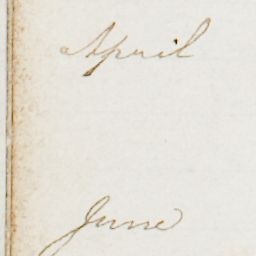 April
June